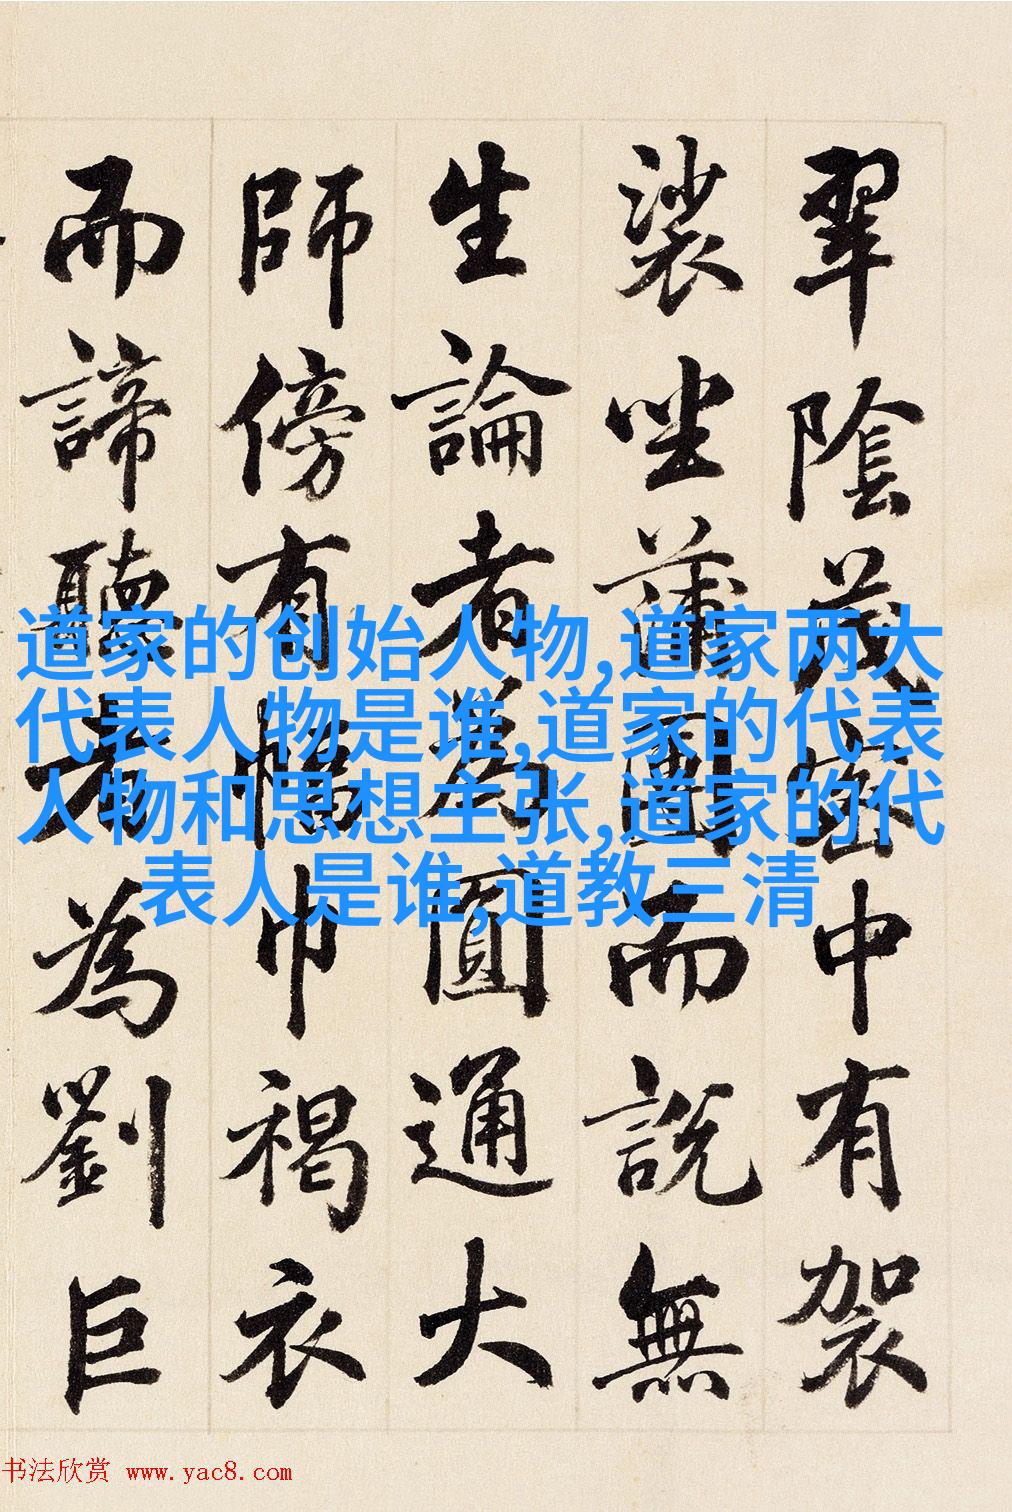 翠陰茂密中有袈
裟坐蒲團而說無
生論者為圓通大
師傍有幅巾褐衣
而諦聽者為劉巨
道家的创始人物,道家两大
代表人物是谁,道家的代表
人物和思想主张,道家的代
表人是谁,道教三清
书法欣赏 www.yac8.com